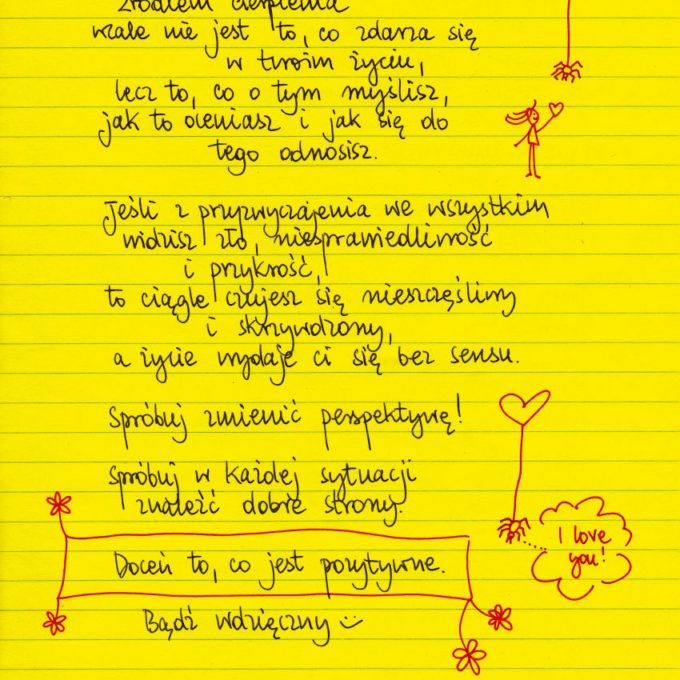 źródłem cierpienia
wcale nie jest to, co zdarza się
w twoim życiu,
lecz to, co o tym myślisz,
jak to oceniasz i jak się do
tego odnosisz.
Jeśli z przyzwyczajenia we wszystkim
widzisz zło, niesprawiedliwość
i przykrość,
to ciągle czujesz się nieszczęśliwy
i skrzywdzony,
a życie wydaje ci się bez sensu.
Spróbuj zmienić perspektywę!
Spróbuj w każdej sytuacji
znaleźć dobre strony.
I love
you!
Doceń to, co jest pozytywne.
Bądź wdzięczny